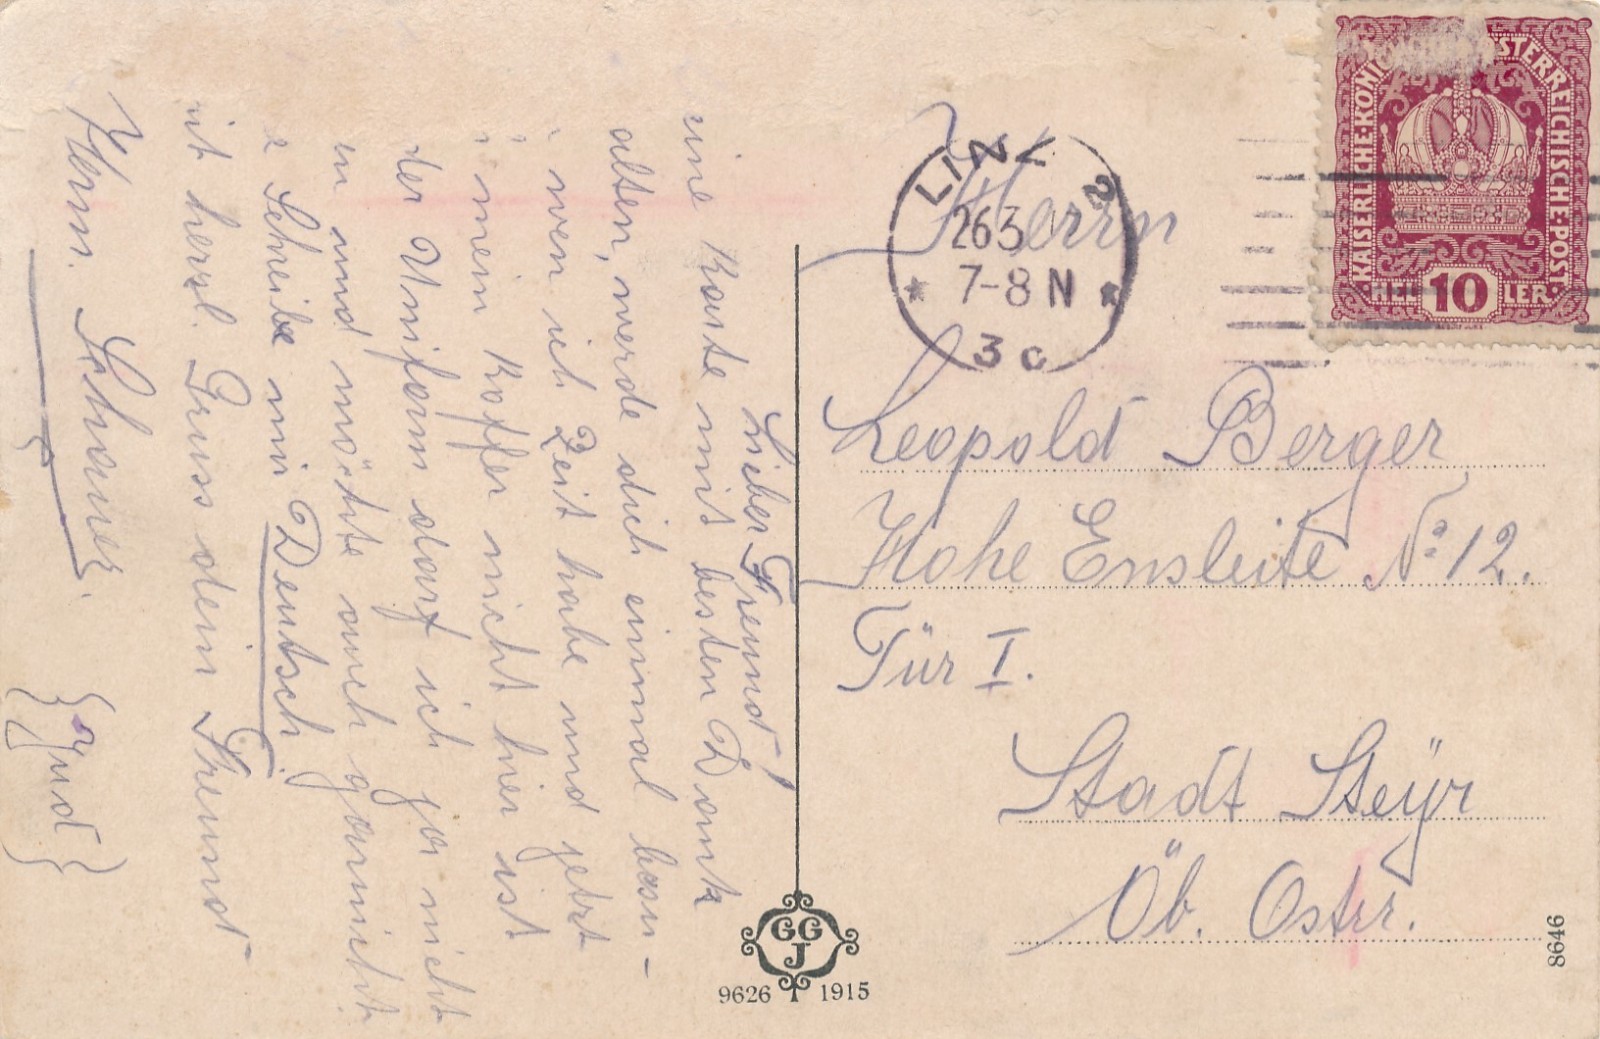 Lieber Freund!
eine Karte mit besten Dank
alten, werde dich einmal besu-
wen ich Zeit habe und jetzt
mein Koffer nicht hier ist
der Uniform darf ich ja nicht
und möchte auch garnicht.
Schreibe mir Deutsch.
herzl. Gruss dein Freund
Herm.
{Jud}
Herrn
Leopold Berger
Hohe Ensleite No 12.
Tür I.
Stadt Steÿr
Öb. Ostrr.
LINZ 2
26 3
7-8 N
3c
ÖSTERREICHISCHE·POST·
KAISERLICHE·
HELLER
10
GG
J
9626 1915
8646